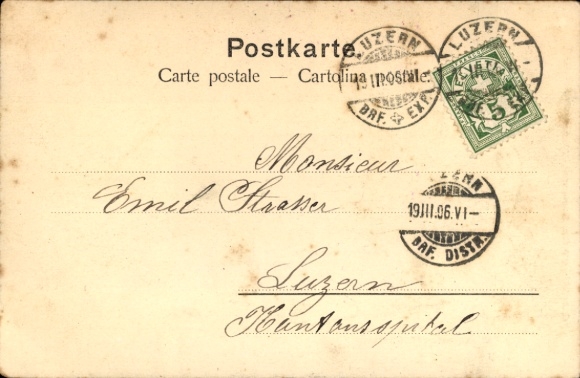 Postkarte.
Carte postale — Cartolina postale.
LUZERN
19 III.06
BRF. EXP.
LUZERN
BRF. EXP.
5
Monsieur
Emil Strasser
LUZERN
19.III.06.VI–
BRF. DISTR.
Luzern
Kantonsspital